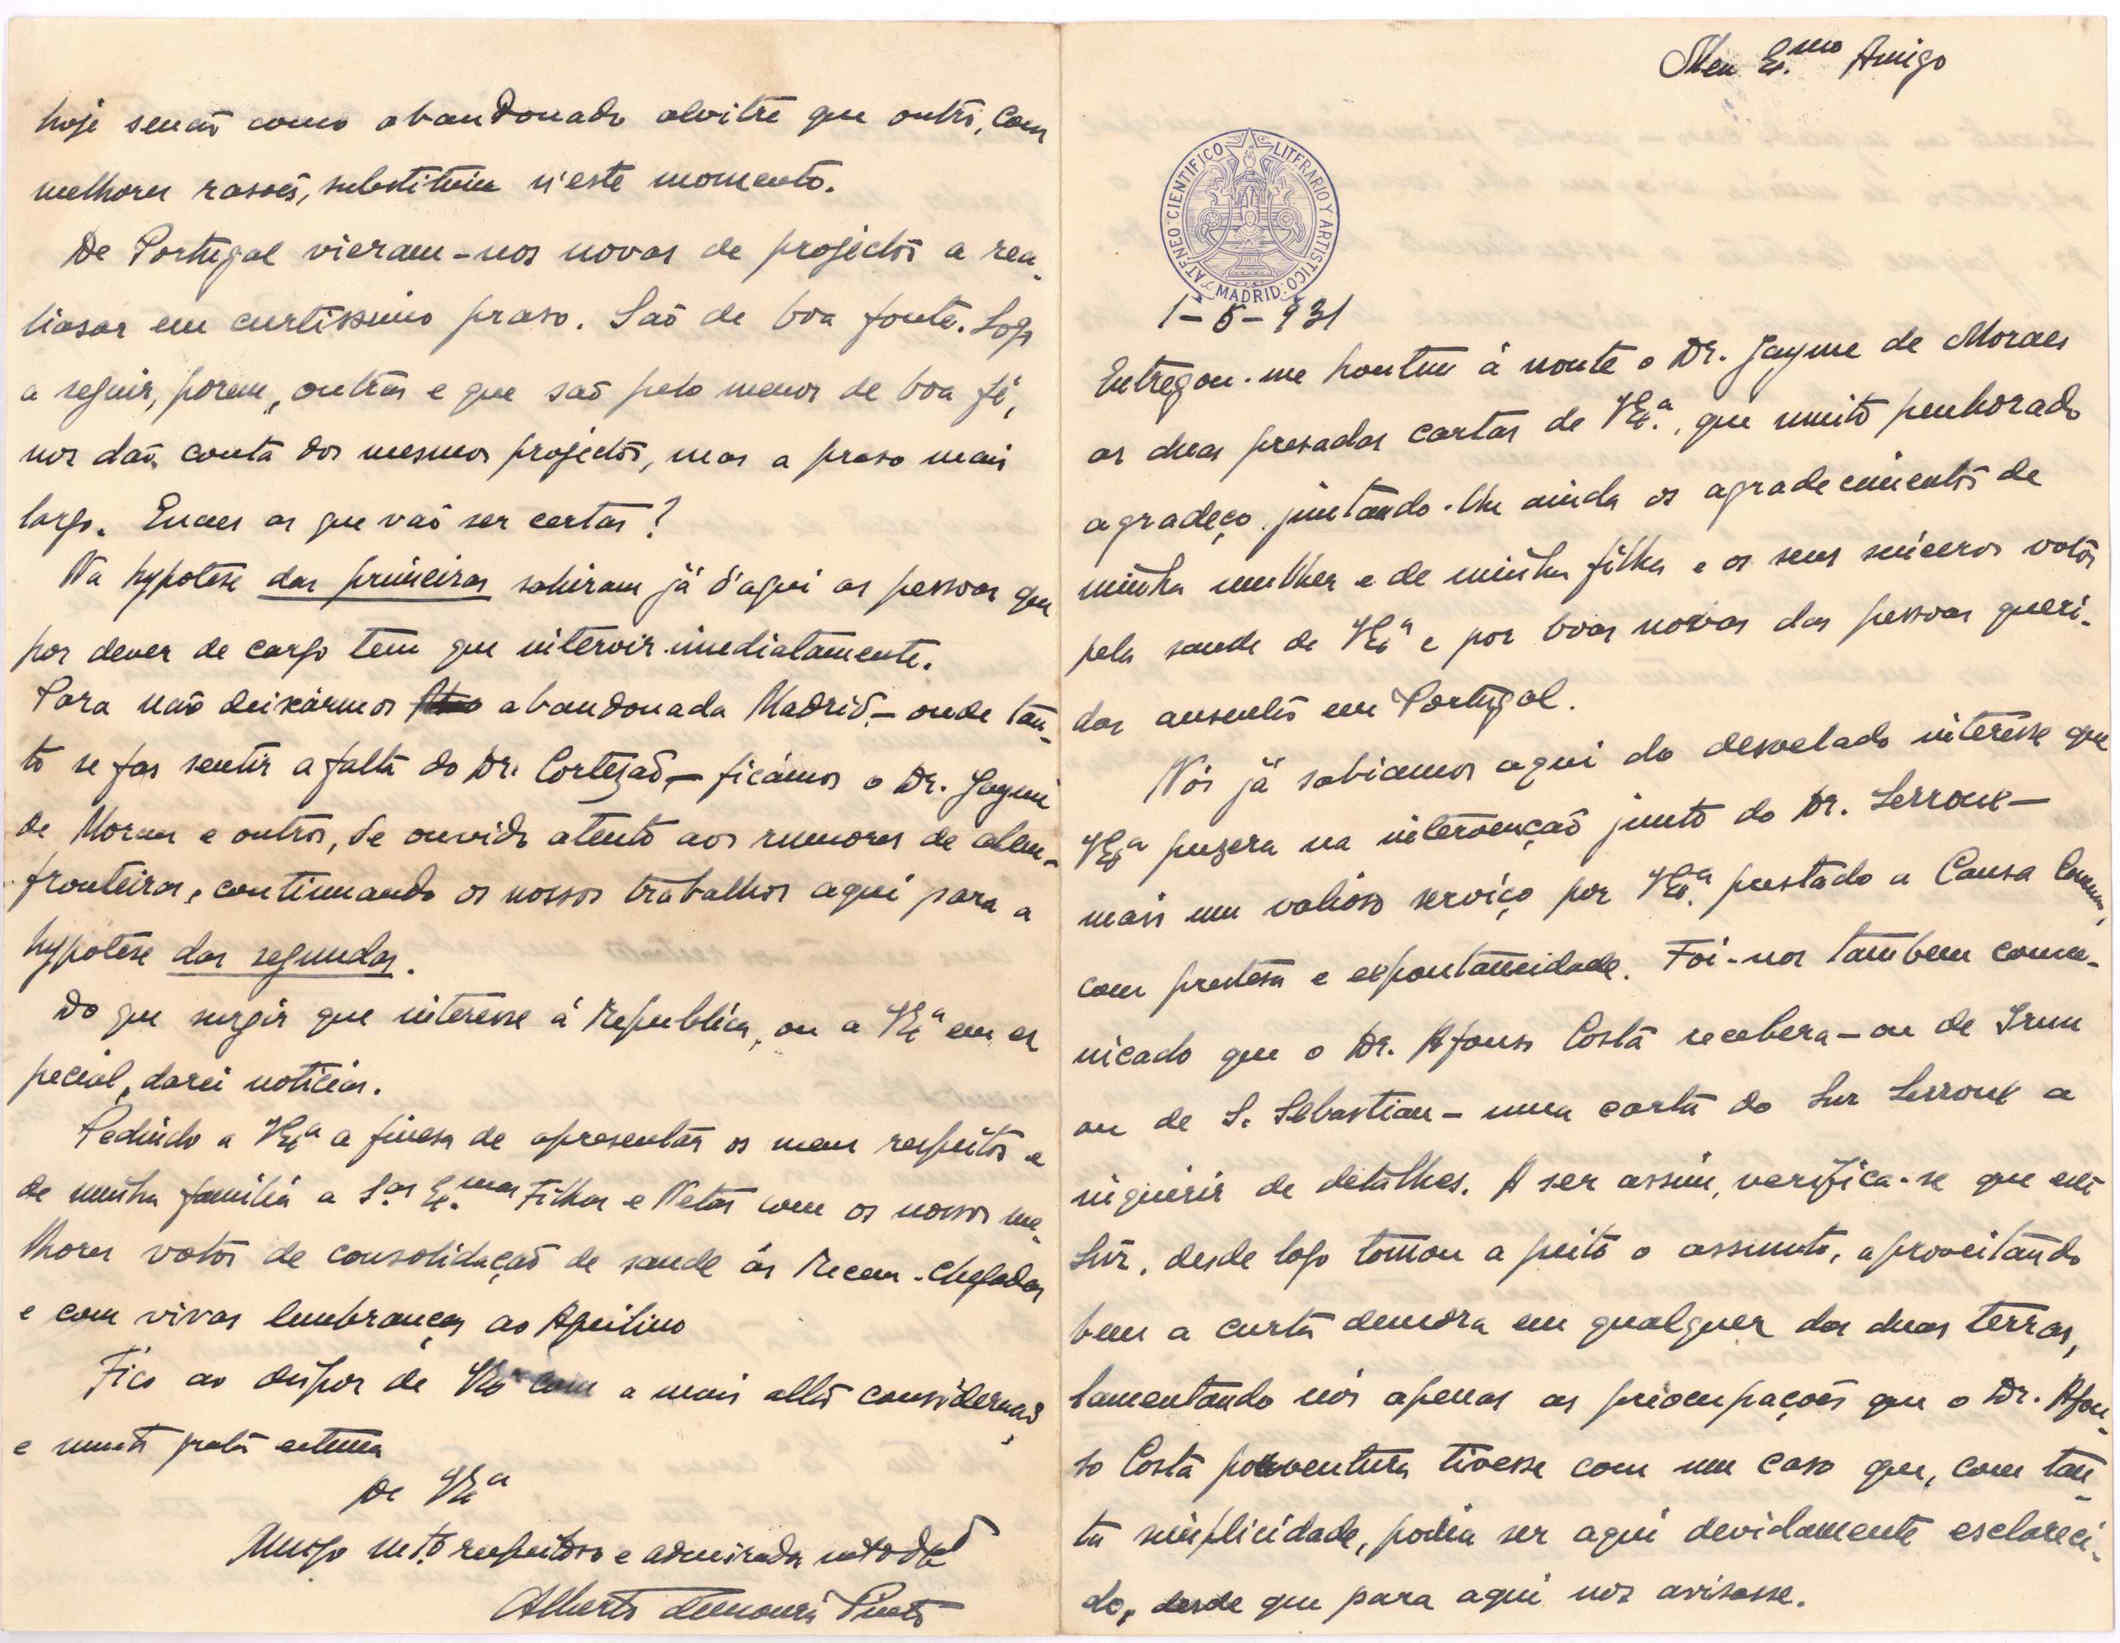 Meu Ex.mo Amigo
ATENEO CIENTIFICO LITERARIO Y ARTISTICO MADRID
1-5-931
Entregou-me hontem á noute o Dr. Jayme de Moraes
as duas presadas cartas de V.Ex.ª, que muito penhorado
agradeço juntando-lhe ainda os agradecimentos de
minha mulher e de minha filha e os seus sinceros votos
pela saude de V.Ex.ª e por boas novas das pessoas queri-
das ausentes em Portugal.
Nós já sabiamos aqui do desvelado interesse que
V.Ex.ª puzera na intervenção junto do Dr. Lerroux —
mais um valioso serviço por V.Ex.ª prestado a Causa Comum,
com presteza e expontaneidade. Foi-nos tambem comu-
nicado que o Dr. Afonso Costa recebera — ou de Irun
ou de S. Sebastian — uma carta do Snr Lerroux a
inquirir de detalhes. A ser assim, verifica-se que este
Snr. desde logo tomou a peito o assunto, aproveitando
bem a curta demora em qualquer das duas terras,
lamentando nós apenas as preocupações que o Dr. Afon-
so Costa porventura tivesse com um caso que, com tan-
ta simplicidade, podia ser aqui devidamente esclareci-
do, desde que para aqui nos avisasse.
hoje senão como abandonado alvitre que outro, com
melhores rasões, substituiu n'este momento.
De Portugal vieram-nos novas de projectos a rea-
lisar em curtissimo praso. São de boa fonte. Logo
a seguir, porem, outras e que são pelo menos de boa fé,
nos dão conta dos mesmos projectos, mas a praso mais
largo. Quaes as que vão ser certas?
Na hypotese das primeiras sahiram já d'aqui as pessoas que
por dever de cargo tem que intervir imediatamente.
Para não deixármos abandonada Madrid — onde tan-
to se faz sentir a falta do Dr. Cortezão — ficámos o Dr. Jayme
de Moraes e outros, de ouvido atento aos rumores de alem-
fronteiras, continuando os nossos trabalhos aqui para a
hypotese das segundas.
Do que surgir que interesse á Republica, ou a V.Ex.ª em es
pecial, darei noticias.
Pedindo a V.Ex.ª a finesa de apresentar os meus respeitos e
de minha familia a S.as Ex.mas Filhas e Netas com os nossos me-
lhores votos de consolidação de saude ás Recem-chegadas
e com vivas lembranças ao Aquilino
Fico ao dispor de V.Ex.ª com a mais alta consideração
e muita grata estima
De V.Ex.ª
Amigo m.to respeitoso e admirador
Alberto de Moura Pinto